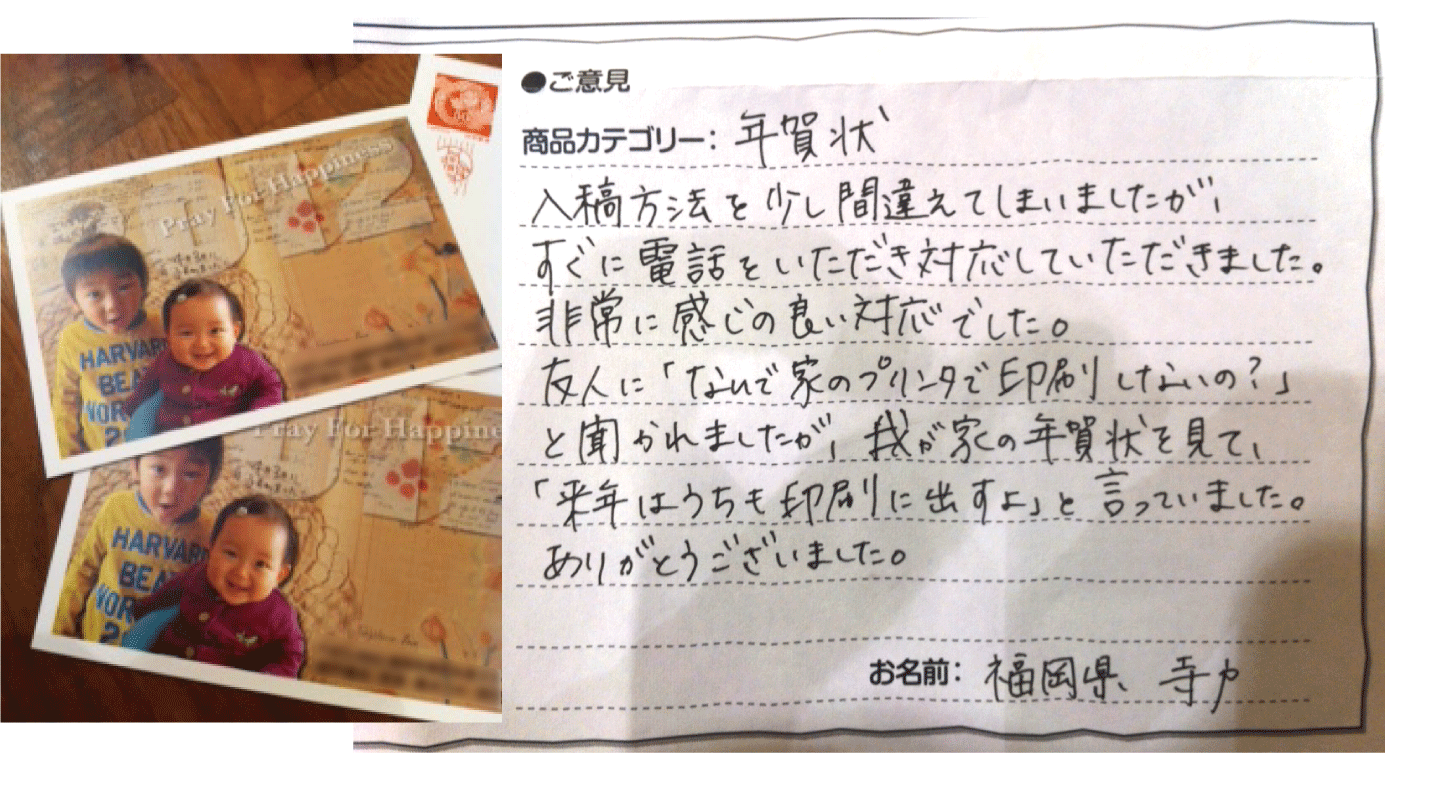 Pray For Happiness
HARVARD
BEA
NOR
2
Pray For Happine
HARVAR
BEA
NOR
2
●ご意見
商品カテゴリー：年賀状
入稿方法を少し間違えてしまいましたが、
すぐに電話をいただき対応していただきました。
非常に感じの良い対応でした。
友人に「なんで家のプリンタで印刷しないの？」
と聞かれましたが、我が家の年賀状を見て、
「来年はうちも印刷に出すよ」と言っていました。
ありがとうございました。
お名前：福岡県 寺戸